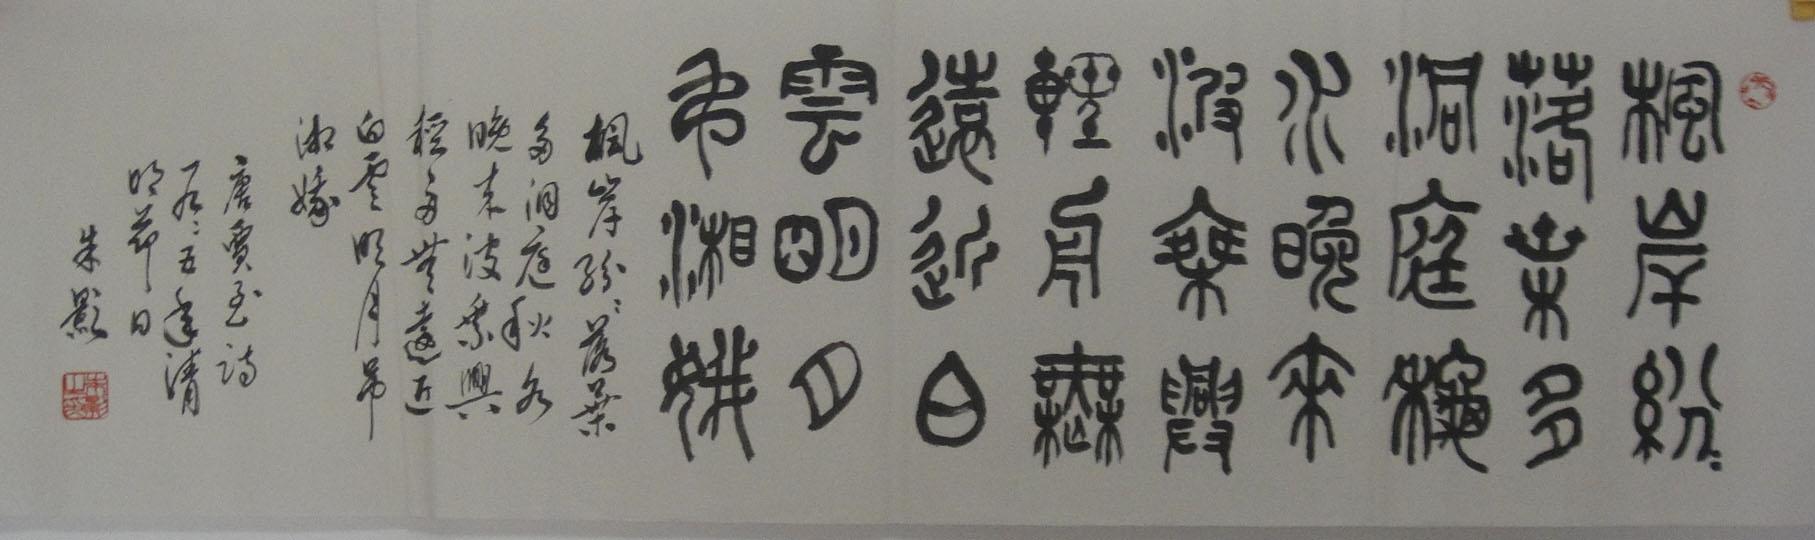 楓岸紛〻
落葉多
洞庭穐
水晚來
波乘興
輕舟無
遠近白
雲明月
弔湘娥
楓岸紛〻落葉
多洞庭秋水
晚來波乘興
輕舟無遠近
白雲明月吊
湘娥
唐賈至詩
一九〻五年清
明節日
朱影